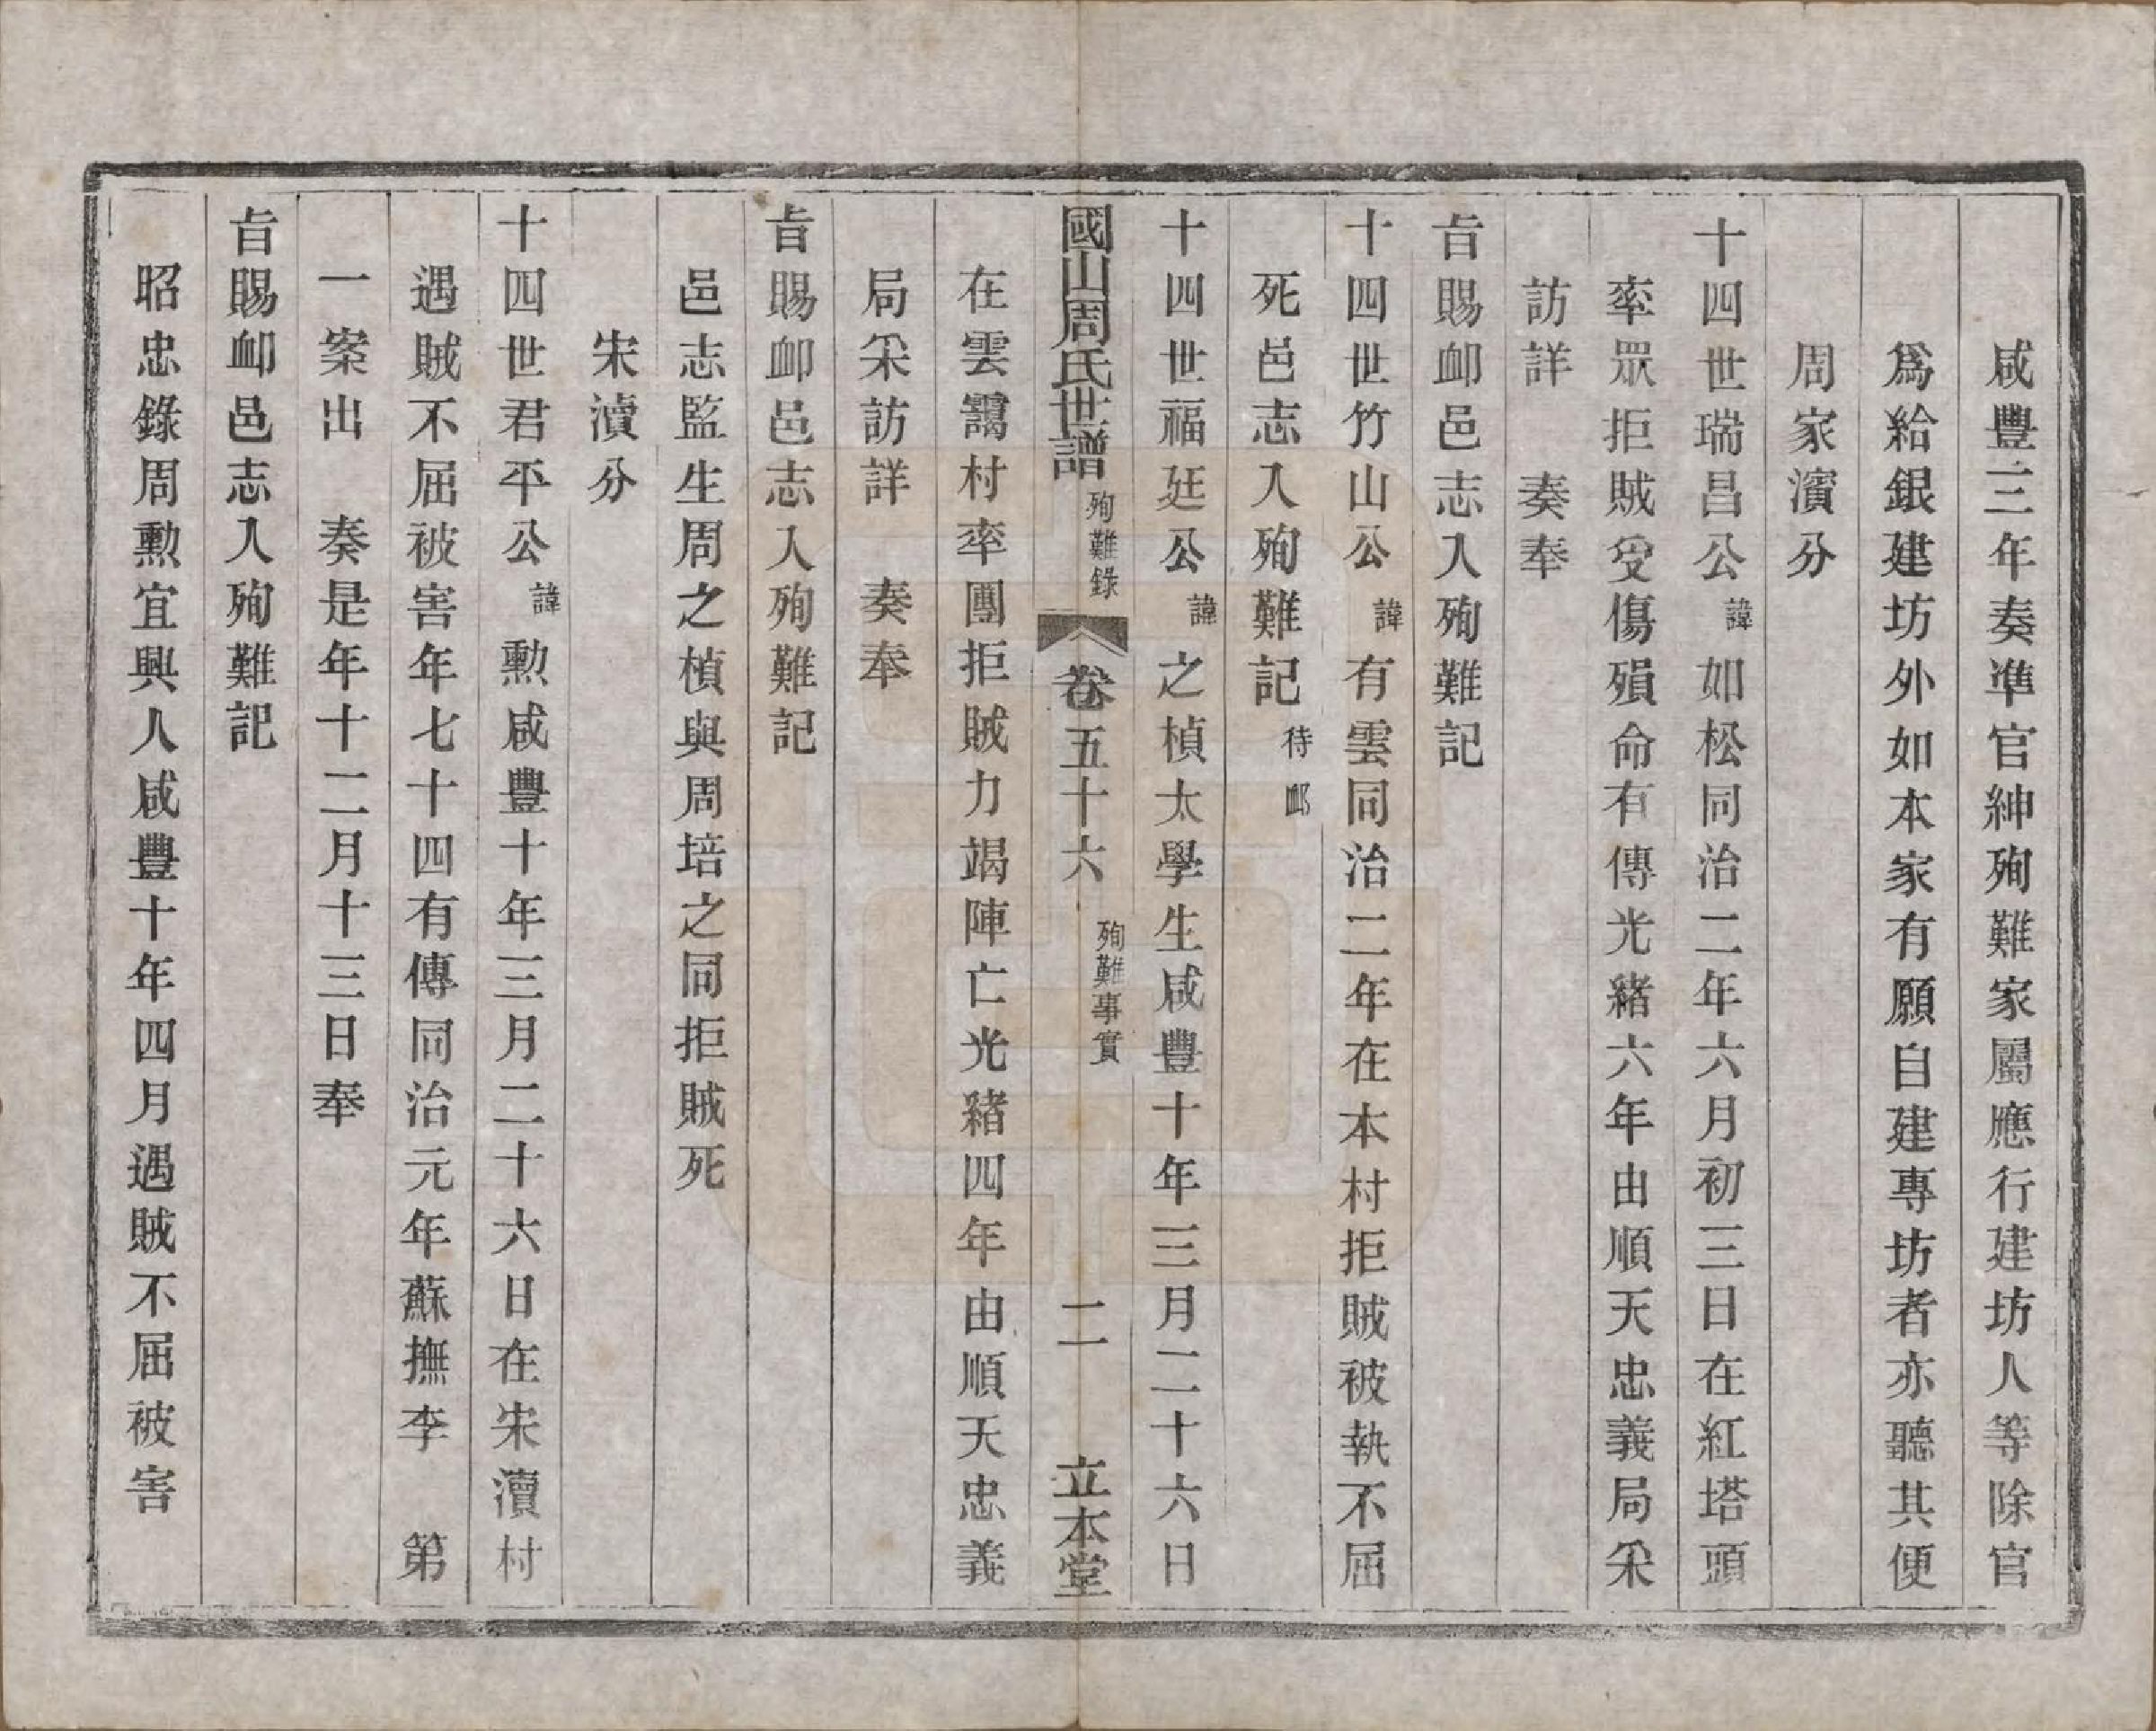 咸豐三年奏準官紳殉難家屬應行建坊人等除官
為給銀建坊外如本家有願自建專坊者亦聽其便
周家濱分
十四世瑞昌公諱如松同治二年六月初三日在紅塔頭
率眾拒賊受傷殞命有傳光緒六年由順天忠義局采
訪詳　奏奉
旨賜卹邑志入殉難記
十四世竹山公諱有雲同治二年在本村拒賊被執不屈
死邑志入殉難記待卹
十四世福廷公諱之楨太學生咸豐十年三月二十六日
國山周氏世譜　殉難錄　卷五十六　殉難事實　二　立本堂
在雲靄村率團拒賊力竭陣亡光緒四年由順天忠義
局采訪詳　奏奉
旨賜卹邑志入殉難記
邑志監生周之楨與周培之同拒賊死
宋瀆分
十四世君平公諱勲咸豐十年三月二十六日在宋瀆村
遇賊不屈被害年七十四有傳同治元年蘇撫李　第
一案出　奏是年十二月十三日奉
旨賜卹邑志入殉難記
昭忠錄周勲宜興人咸豐十年四月遇賊不屈被害